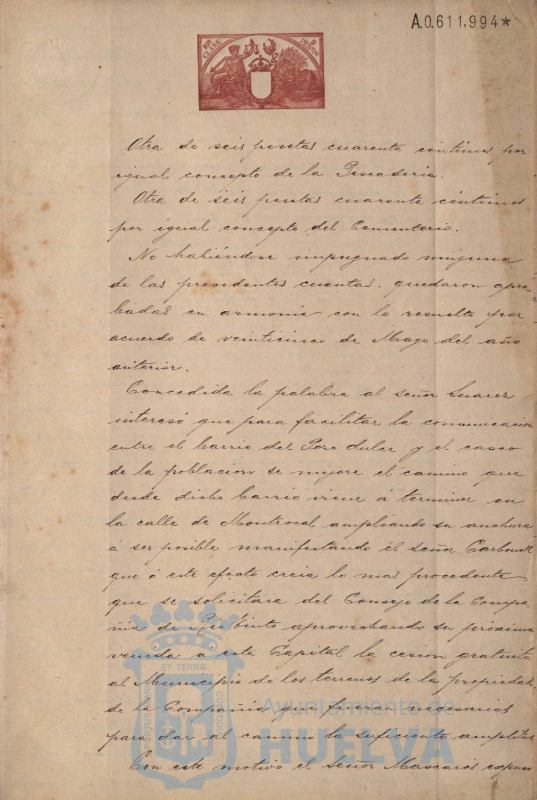 A.0.611,994*
10ª CLASE 2 PESETAS
Otra de seis pesetas cuarenta céntimos por
igual concepto de la Pescadería.
Otra de seis pesetas cuarenta céntimos
por igual concepto del Cementerio.
No habiéndose impugnado ninguna
de las precedentes cuentas, quedaron apro-
badas en armonía con lo resuelto por
acuerdo de veinticinco de Mayo del año
anterior.
Concedida la palabra al señor Suarez
interesó que para facilitar la comunicación
entre el barrio del Pozo dulce y el casco
de la poblacion se mejore el camino que
desde dicho barrio viene á terminar en
la calle de Montrocal ampliando su anchura
á ser posible manifestando el señor Carbonell
que á este efecto creia lo mas procedente
que se solicitara del Consejo de la Compa-
ñia de Rio Tinto aprovechando su próxima
venida a esta Capital la cesion gratuita
al Municipio de los terrenos de la propiedad
de la Compañia que fueran necesarios
para dar al camino la suficiente amplitud
Con este motivo el señor Mascarós expuso
PORTUS MARIS
ET TERRÆ
CUSTODIA
Ayuntamiento de
HUELVA